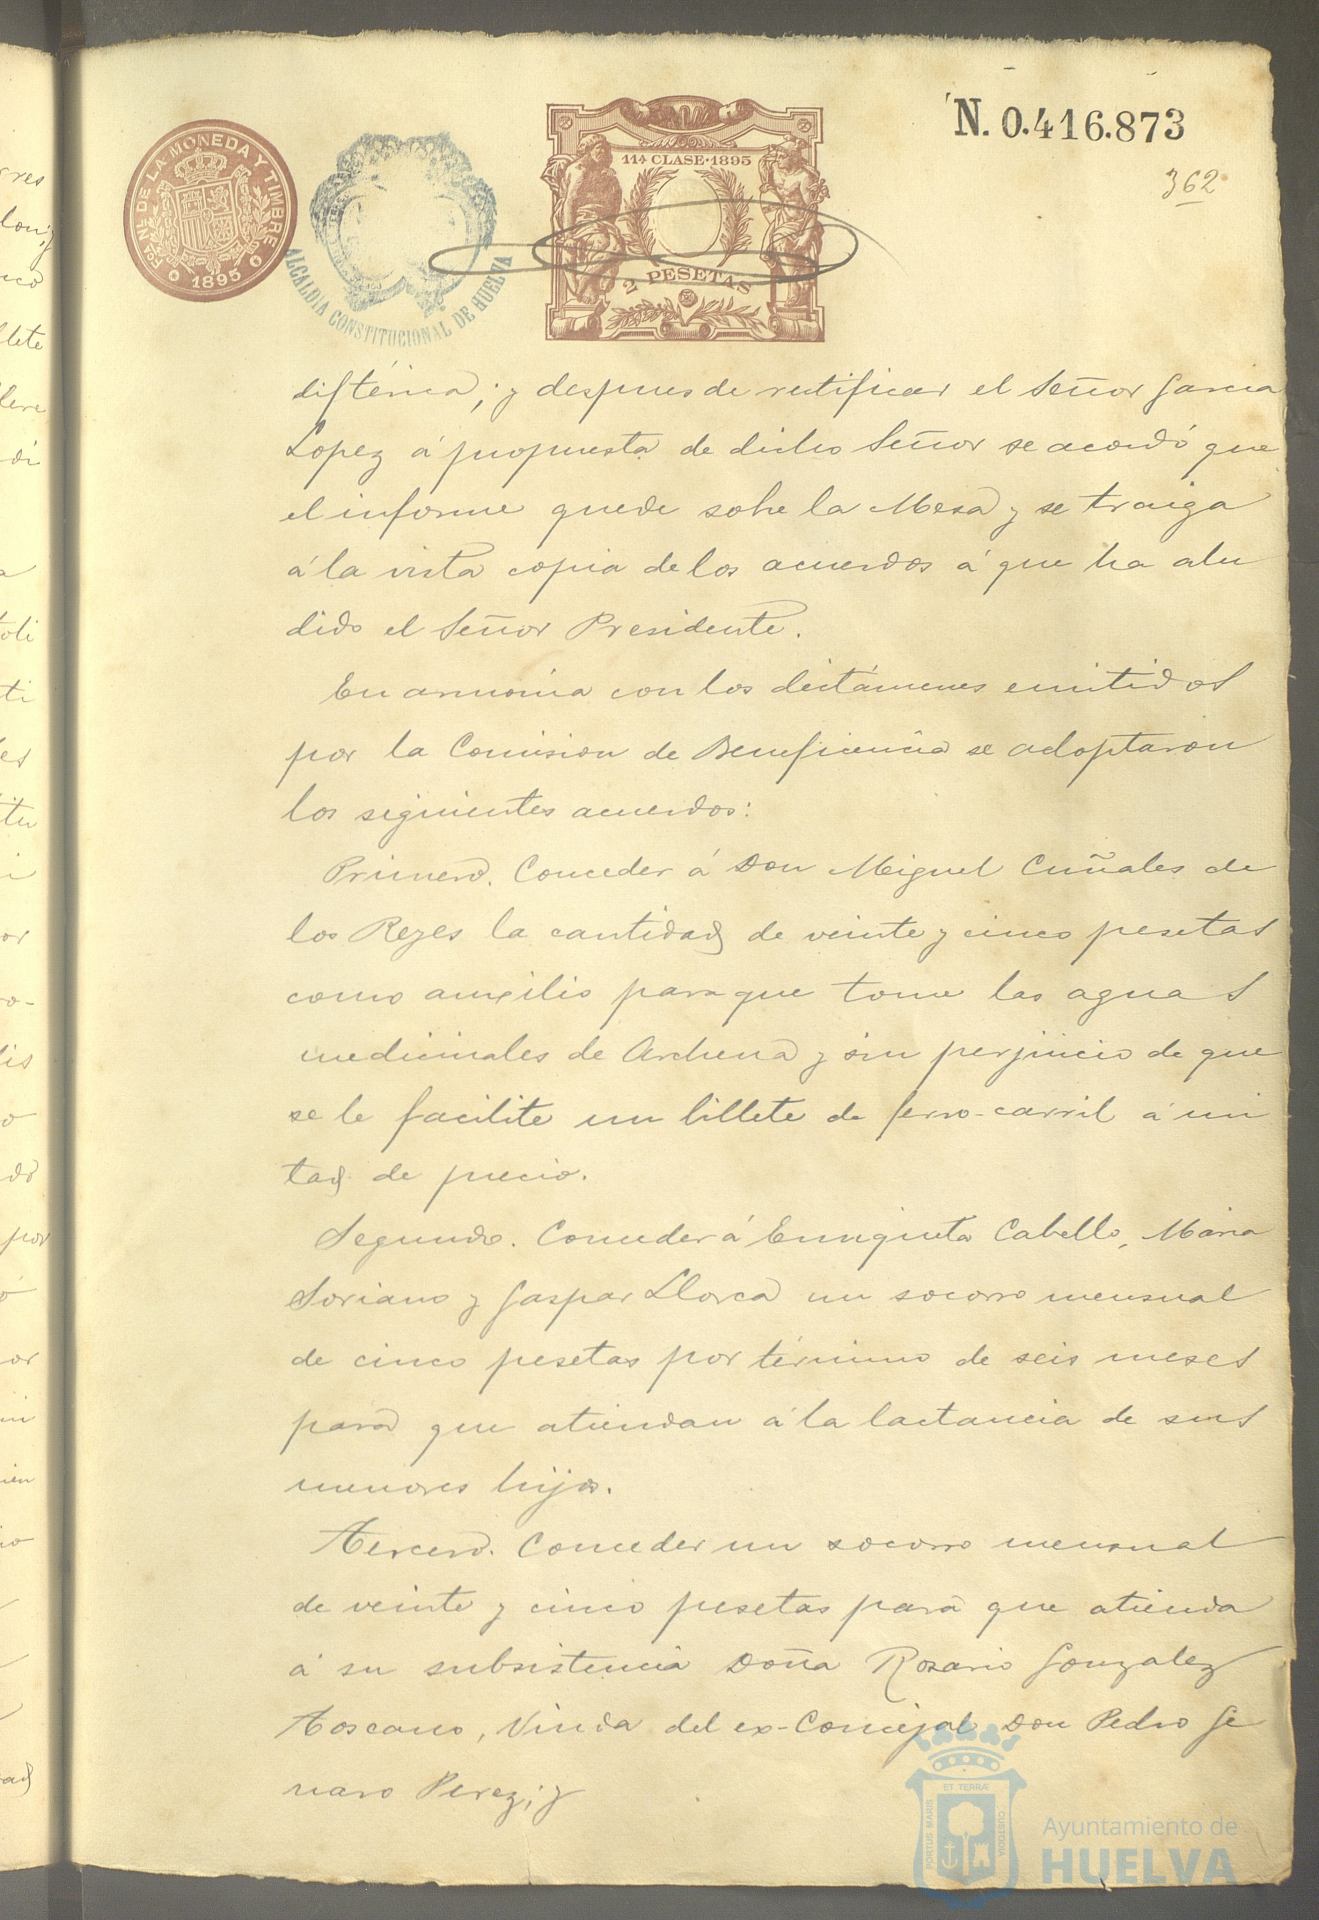 N. 0.416.873
362
FCA. NAL. DE LA MONEDA Y TIMBRE
1895
ALCALDIA CONSTITUCIONAL DE HUELVA
11ª CLASE·1895
2 PESETAS
diftérica; y despues de rectificar el Señor Garcia
Lopez á propuesta de dicho Señor se acordó que
el informe quede sobre la Mesa y se traiga
á la vista copia de los acuerdos á que ha alu
dido el Señor Presidente.
En armonía con los dictámenes emitidos
por la Comision de Beneficencia se adoptaron
los siguientes acuerdos:
Primero. Conceder á Don Miguel Cuñales de
los Reyes la cantidad de veinte y cinco pesetas
como auxilio para que tome las aguas
medicinales de Archena y sin perjuicio de que
se le facilite un billete de ferro-carril á mi
tad de precio.
Segundo. Conceder á Enriqueta Cabello, Maria
Soriano y Gaspar Llorca un socorro mensual
de cinco pesetas por término de seis meses
para que atiendan á la lactancia de sus
menores hijos.
Tercero. Conceder un socorro mensual
de veinte y cinco pesetas para que atienda
á su subsistencia Doña Rosario Gonzalez
Toscano, Viuda del ex-Concejal Don Pedro Ge
naro Perez; y
PORTUS MARIS
ET TERRÆ
CUSTODIA
Ayuntamiento de
HUELVA